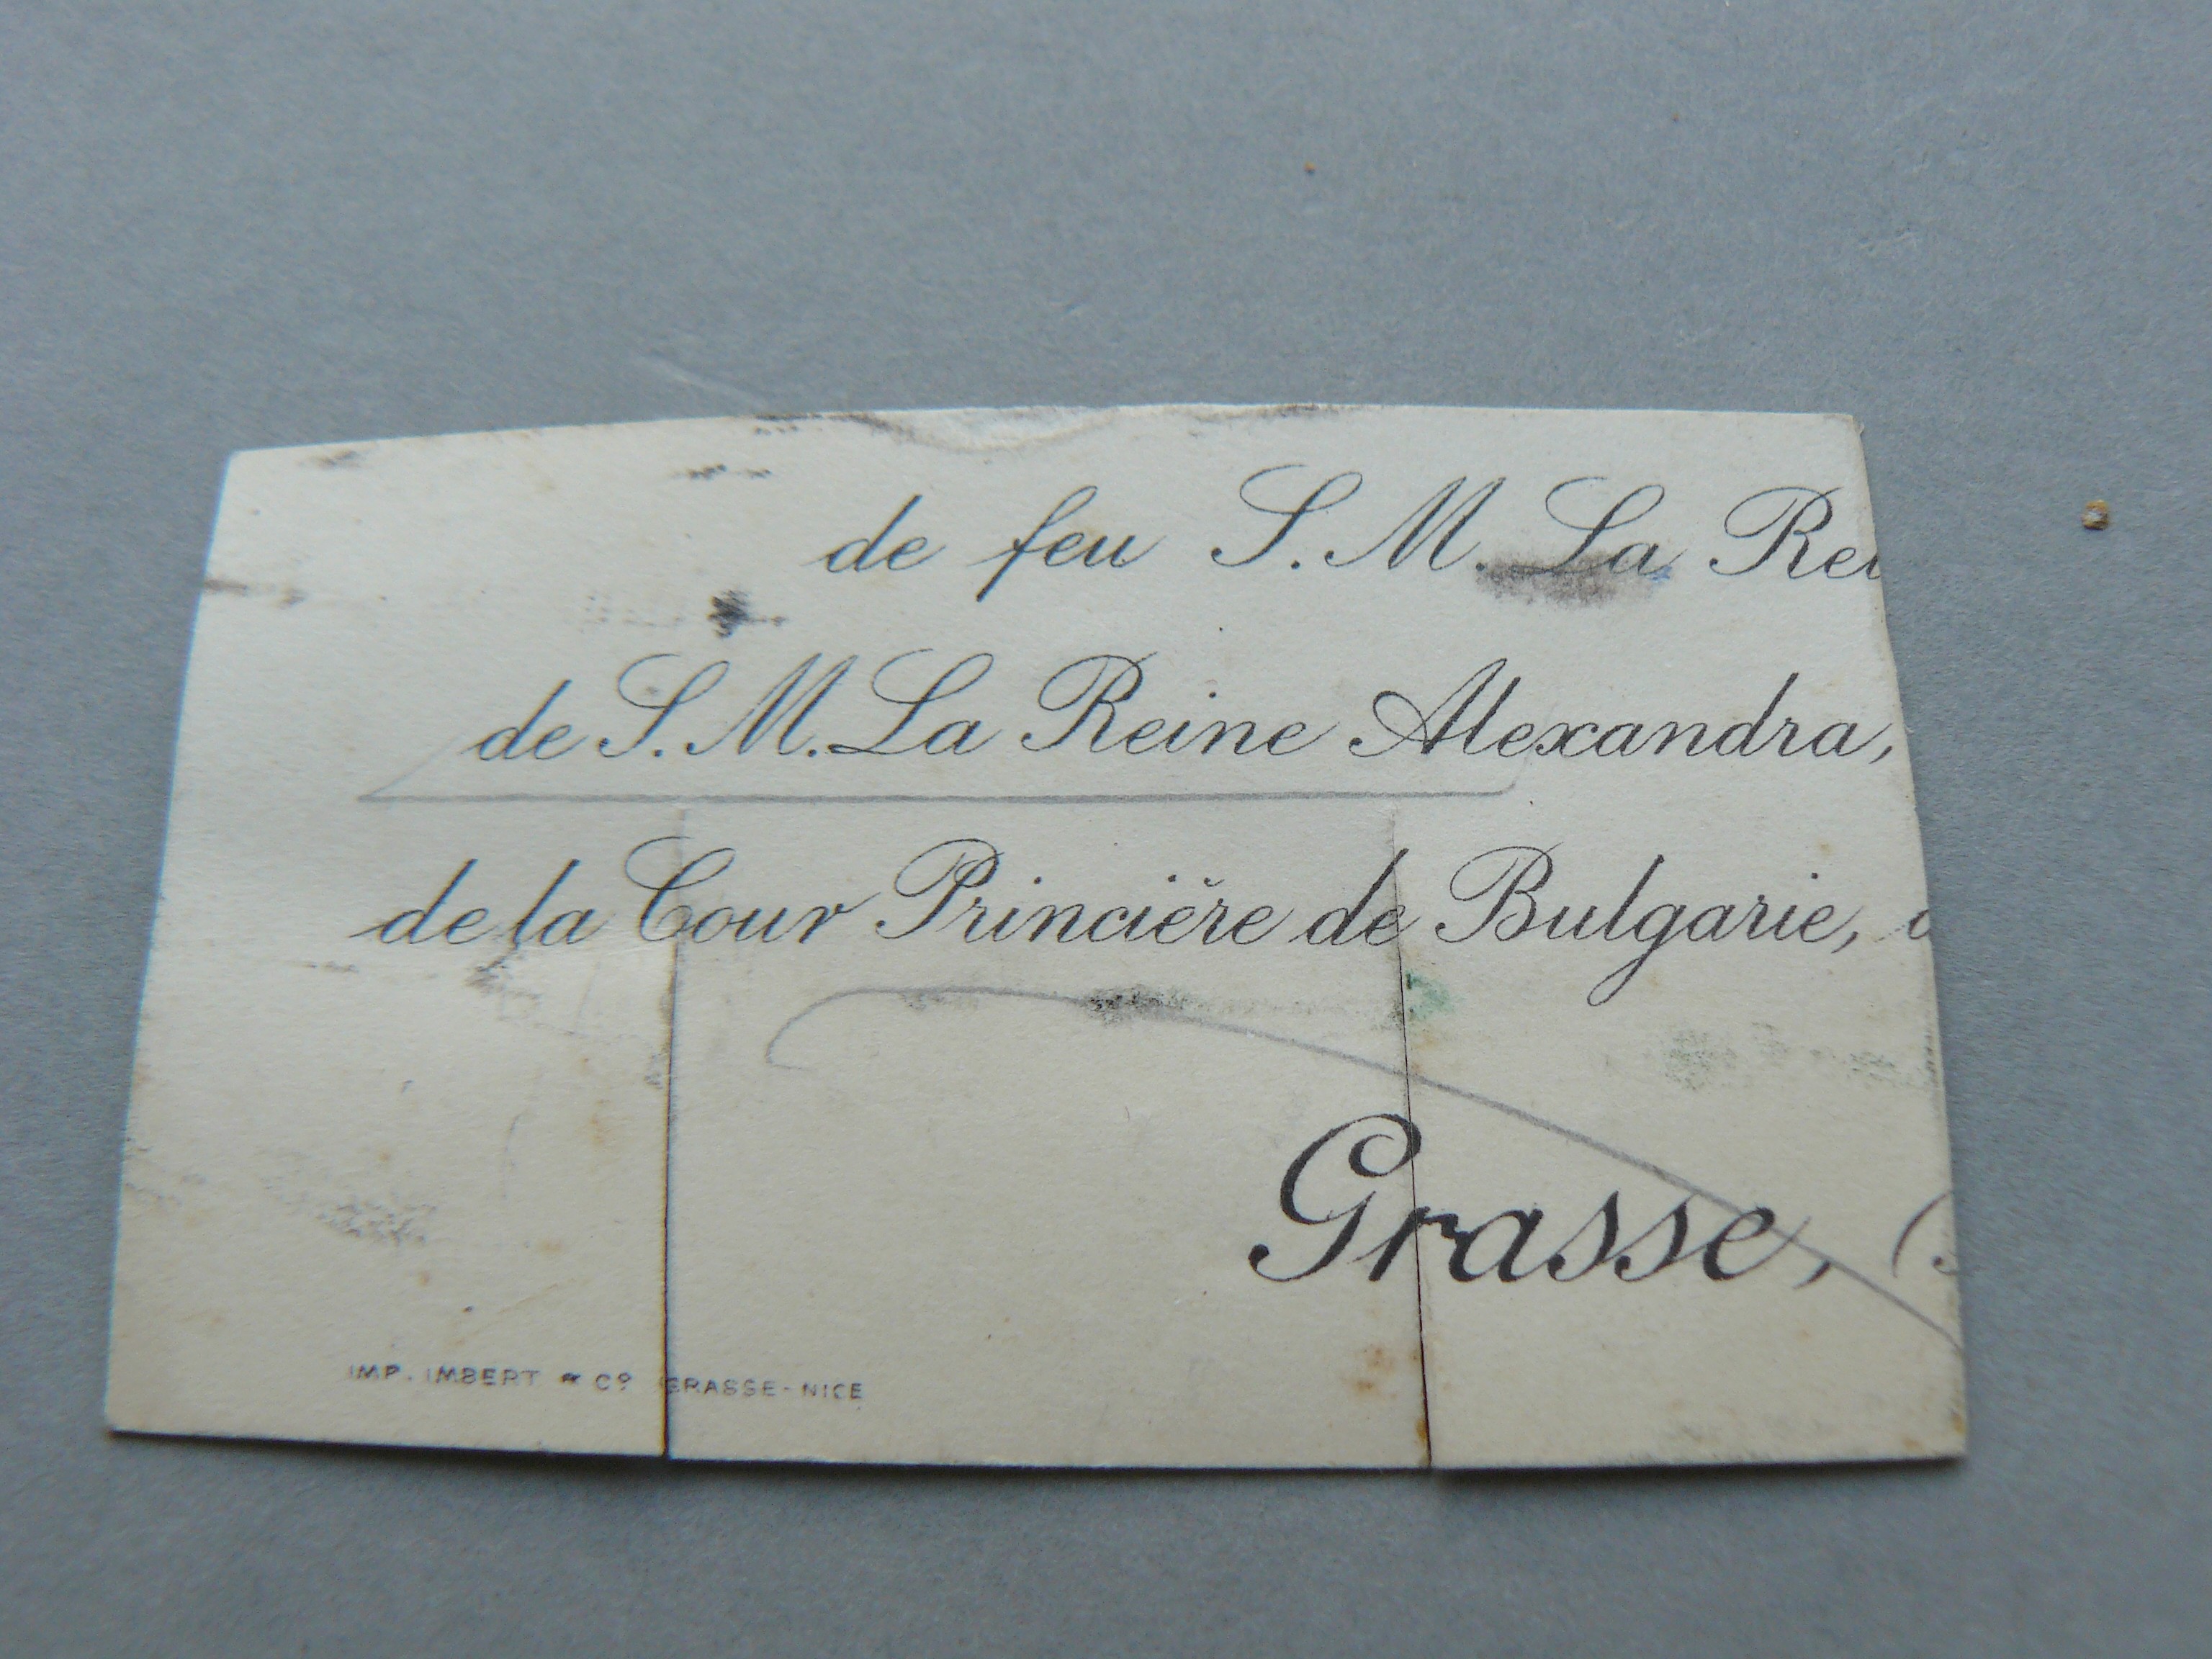 de feu S. M. La Rei
de S. M. La Reine Alexandra,
de la Cour Princière de Bulgarie,
Grasse, (
IMP. IMBERT & Cº GRASSE-NICE